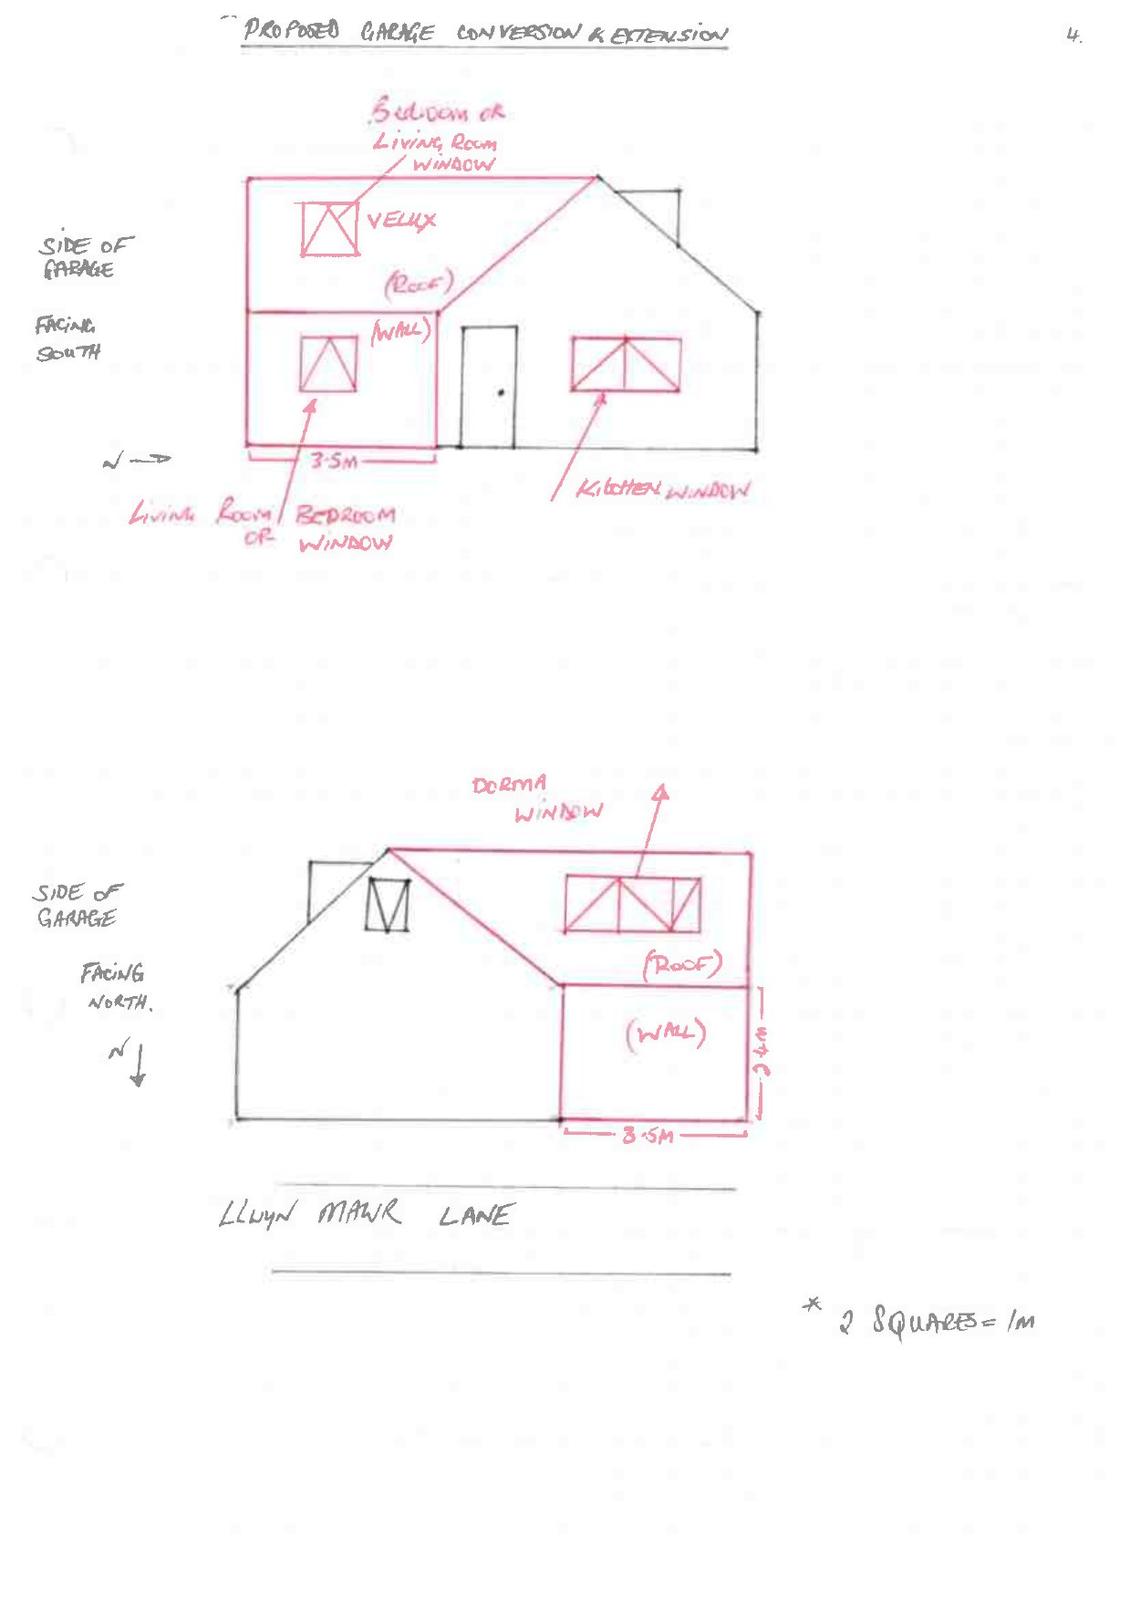 PROPOSED GARAGE CONVERSION & EXTENSION
4.
Bedroom OR
Living Room
WINDOW
VELUX
SIDE OF
GARAGE
(ROOF)
FACING
SOUTH
(WALL)
N
3.5M
KITCHEN WINDOW
Living Room/ BEDROOM
OR WINDOW
DORMA
WINDOW
SIDE OF
GARAGE
FACING
NORTH.
(ROOF)
(WALL)
N
2.4M
3.5M
LLWYN MAWR LANE
* 2 SQUARES = 1M